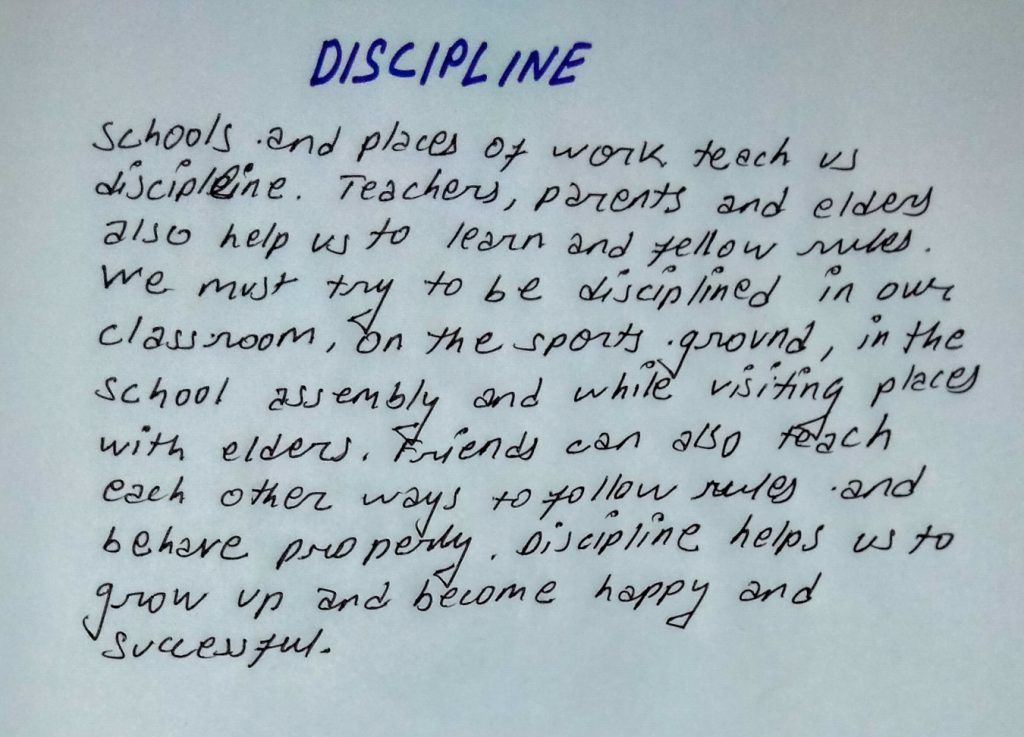 DISCIPLINE
Schools and places of work teach us
discipline. Teachers, parents and elders
also help us to learn and fellow rules.
We must try to be disciplined in our
classroom, on the sports ground, in the
school assembly and while visiting places
with elders. Friends can also teach
each other ways to follow rules and
behave properly. Discipline helps us to
grow up and become happy and
successful.